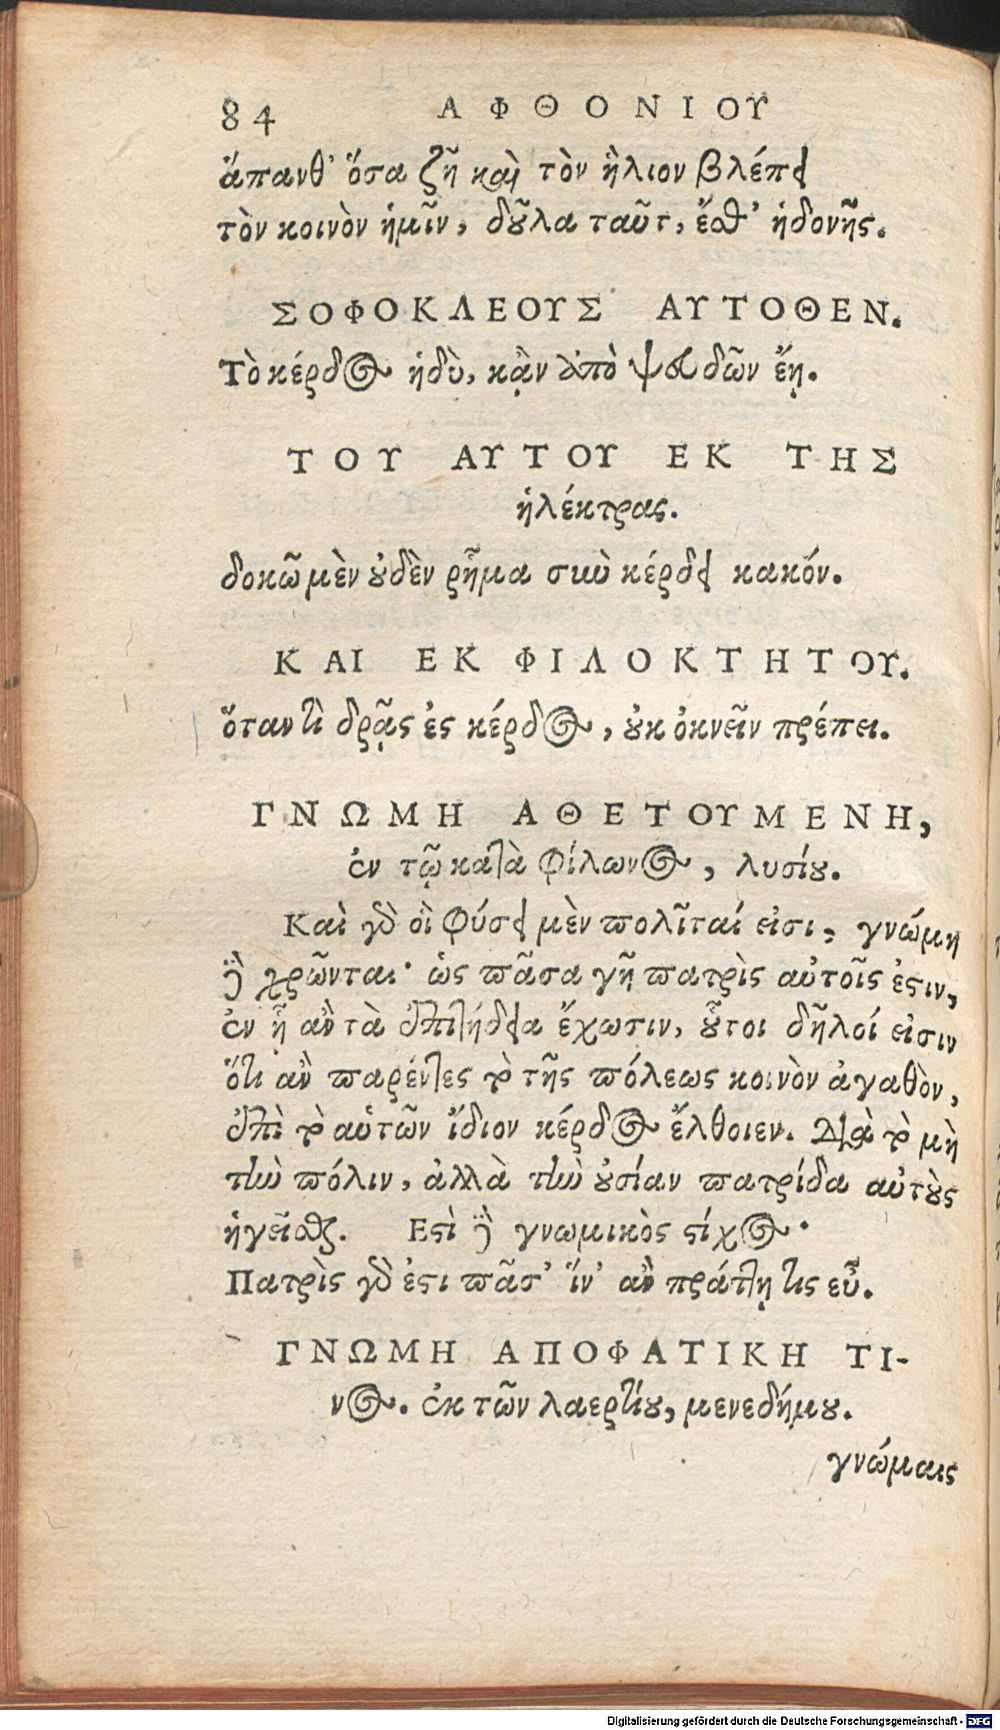 84 ΑΦΘΟΝΙΟΥ
ἅπανθ' ὅσα ζῆ καὶ τὸν ἥλιον βλέπει
τὸν κοινὸν ἡμῖν, δοῦλα ταῦτ, ἔσθ' ἡδονῆς.
ΣΟΦΟΚΛΕΟΥΣ ΑΥΤΟΘΕΝ.
Τὸ κέρδος ἡδὺ, κἂν ἀπὸ ψευδῶν ἔῃ.
ΤΟΥ ΑΥΤΟΥ ΕΚ ΤΗΣ
ἠλέκτρας.
δοκῶ μὲν οὐδὲν ῥῆμα σὺν κέρδει κακόν.
ΚΑΙ ΕΚ ΦΙΛΟΚΤΗΤΟΥ.
ὅταν τὶ δρᾷς ἐς κέρδος, οὐκ ὀκνεῖν πρέπει.
ΓΝΩΜΗ ΑΘΕΤΟΥΜΕΝΗ,
ἐν τῷ κατὰ Φίλωνος, λυσίου.
Καὶ γὰρ οἳ φύσει μὲν πολῖταί εἰσι, γνώμῃ
δὲ χρῶνται· ὡς πᾶσα γῆ πατρὶς αὐτοῖς ἐστιν,
ἐν ᾗ ἂν τὰ ἐπιτήδεια ἔχωσιν, οὗτοι δῆλοί εἰσιν
ὅτι ἂν παρέντες τὸ τῆς πόλεως κοινὸν ἀγαθὸν,
ἐπὶ τὸ αὑτῶν ἴδιον κέρδος ἔλθοιεν. Διὰ τὸ μὴ
τὴν πόλιν, ἀλλὰ τὴν οὐσίαν πατρίδα αὐτοὺς
ἡγεῖσθαι. Εστὶ δὲ γνωμικὸς στίχος·
Πατρὶς γὰρ ἐστι πᾶσ' ἵν' ἂν πράττῃ τις εὖ.
ΓΝΩΜΗ ΑΠΟΦΑΤΙΚΗ ΤΙ-
νος. ἐκ τῶν λαερτίου, μενεδήμου.
γνώμαις
Digitalisierung gefördert durch die Deutsche Forschungsgemeinschaft - DFG